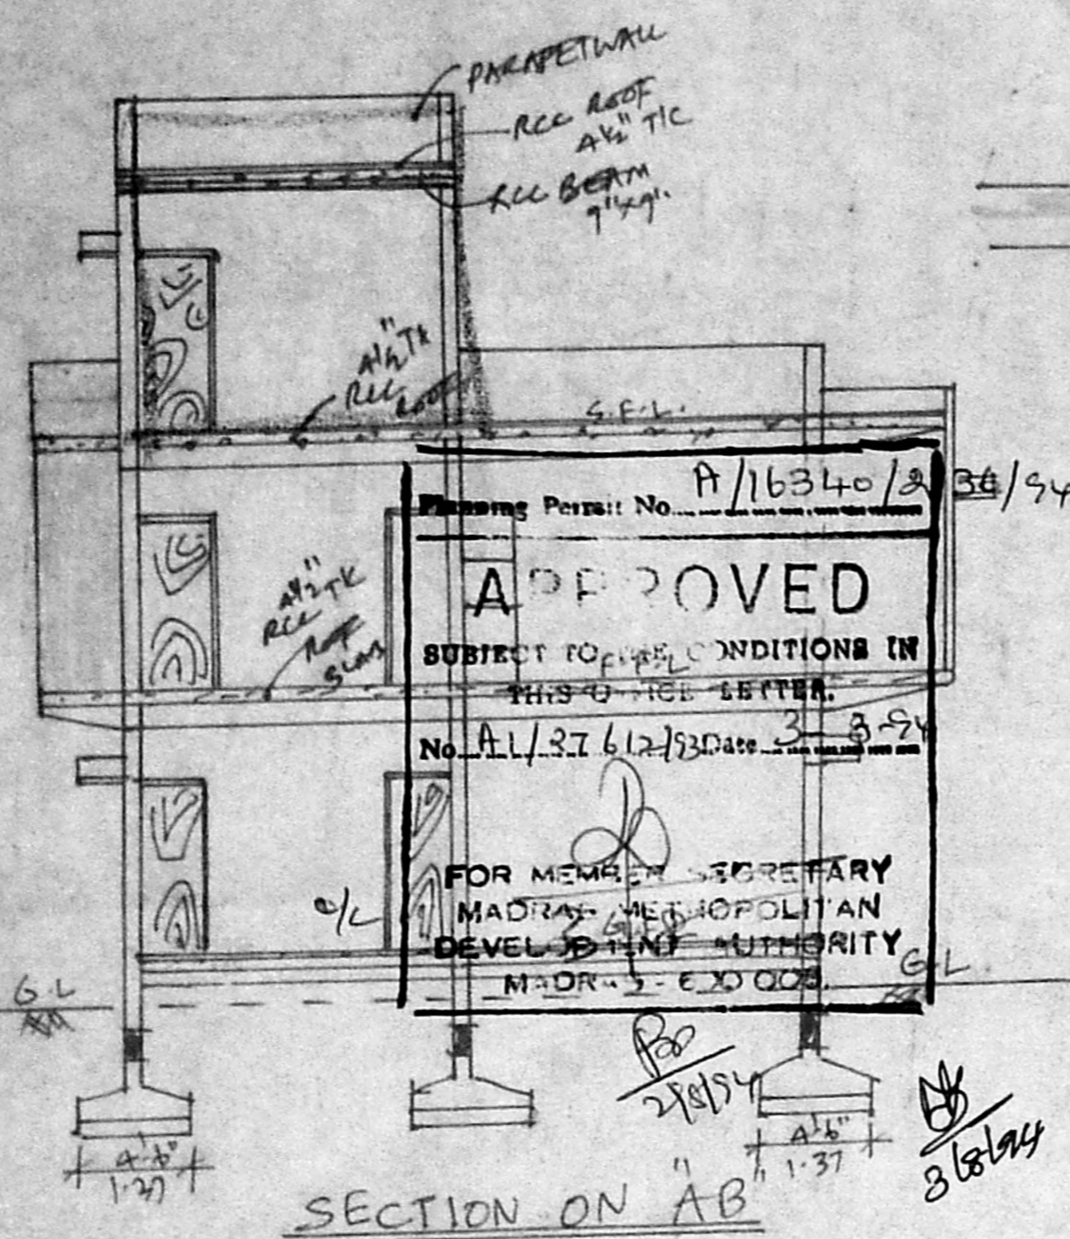 PARAPETWALL
RCC ROOF
4½" T/C
RCC BEAM
9"x9"
4½" TK
RCC
ROOF
S.F.L.
Planning Permit No. A/16340/2 /94
APPROVED
SUBJECT TO THE CONDITIONS IN
THIS OFFICE LETTER.
No. A1/37612/93 Date 3-8-94
4½"
RCC TK
ROOF
SLAB
FOR MEMBER SECRETARY
MADRAS METROPOLITAN
DEVELOPMENT AUTHORITY
MADRAS - 600 008.
G.L
G.L
2/8/94
3/8/94
4'6"
1.37
4'6"
1.37
SECTION ON "AB"